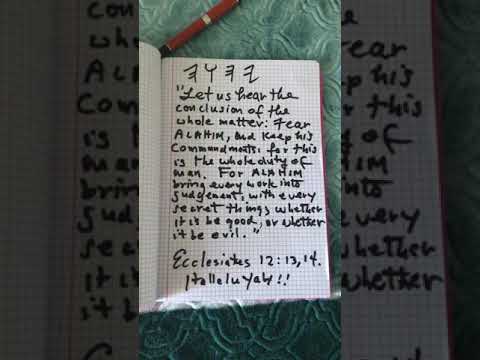 𐤉𐤄𐤅𐤄
"Let us hear the
conclusion of the
whole matter: Fear
ALAHIM, and Keep his
Commandments: for this
is the whole duty of
man. For ALAHIM
bring every work into
judgement, with every
secret things whether
it is be good, or whether
it be evil."
Ecclesiates 12:13,14.
HalleluYah!!